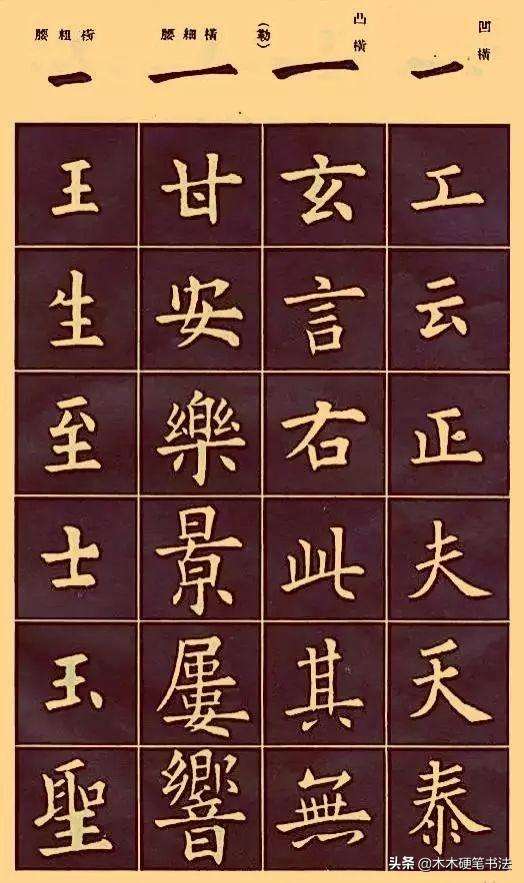 凹橫
工
云
正
夫
天
泰
凸橫
(勒)
玄
言
右
此
其
無
橫細腰
甘
安
樂
景
屢
響
橫粗腰
王
生
至
士
玉
聖
头条 @木木硬笔书法